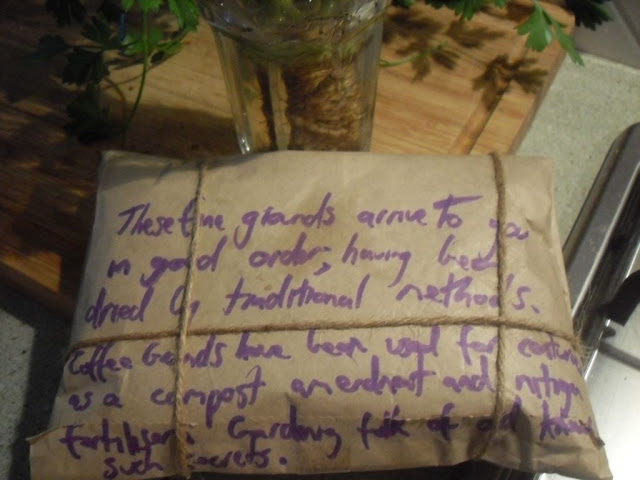 These fine grounds arrive to you
in good order; having been
dried by traditional methods.
Coffee Grounds have been used for centuries
as a compost amendment and nitrogen
fertiliser. Gardening folk of old knew
such secrets.